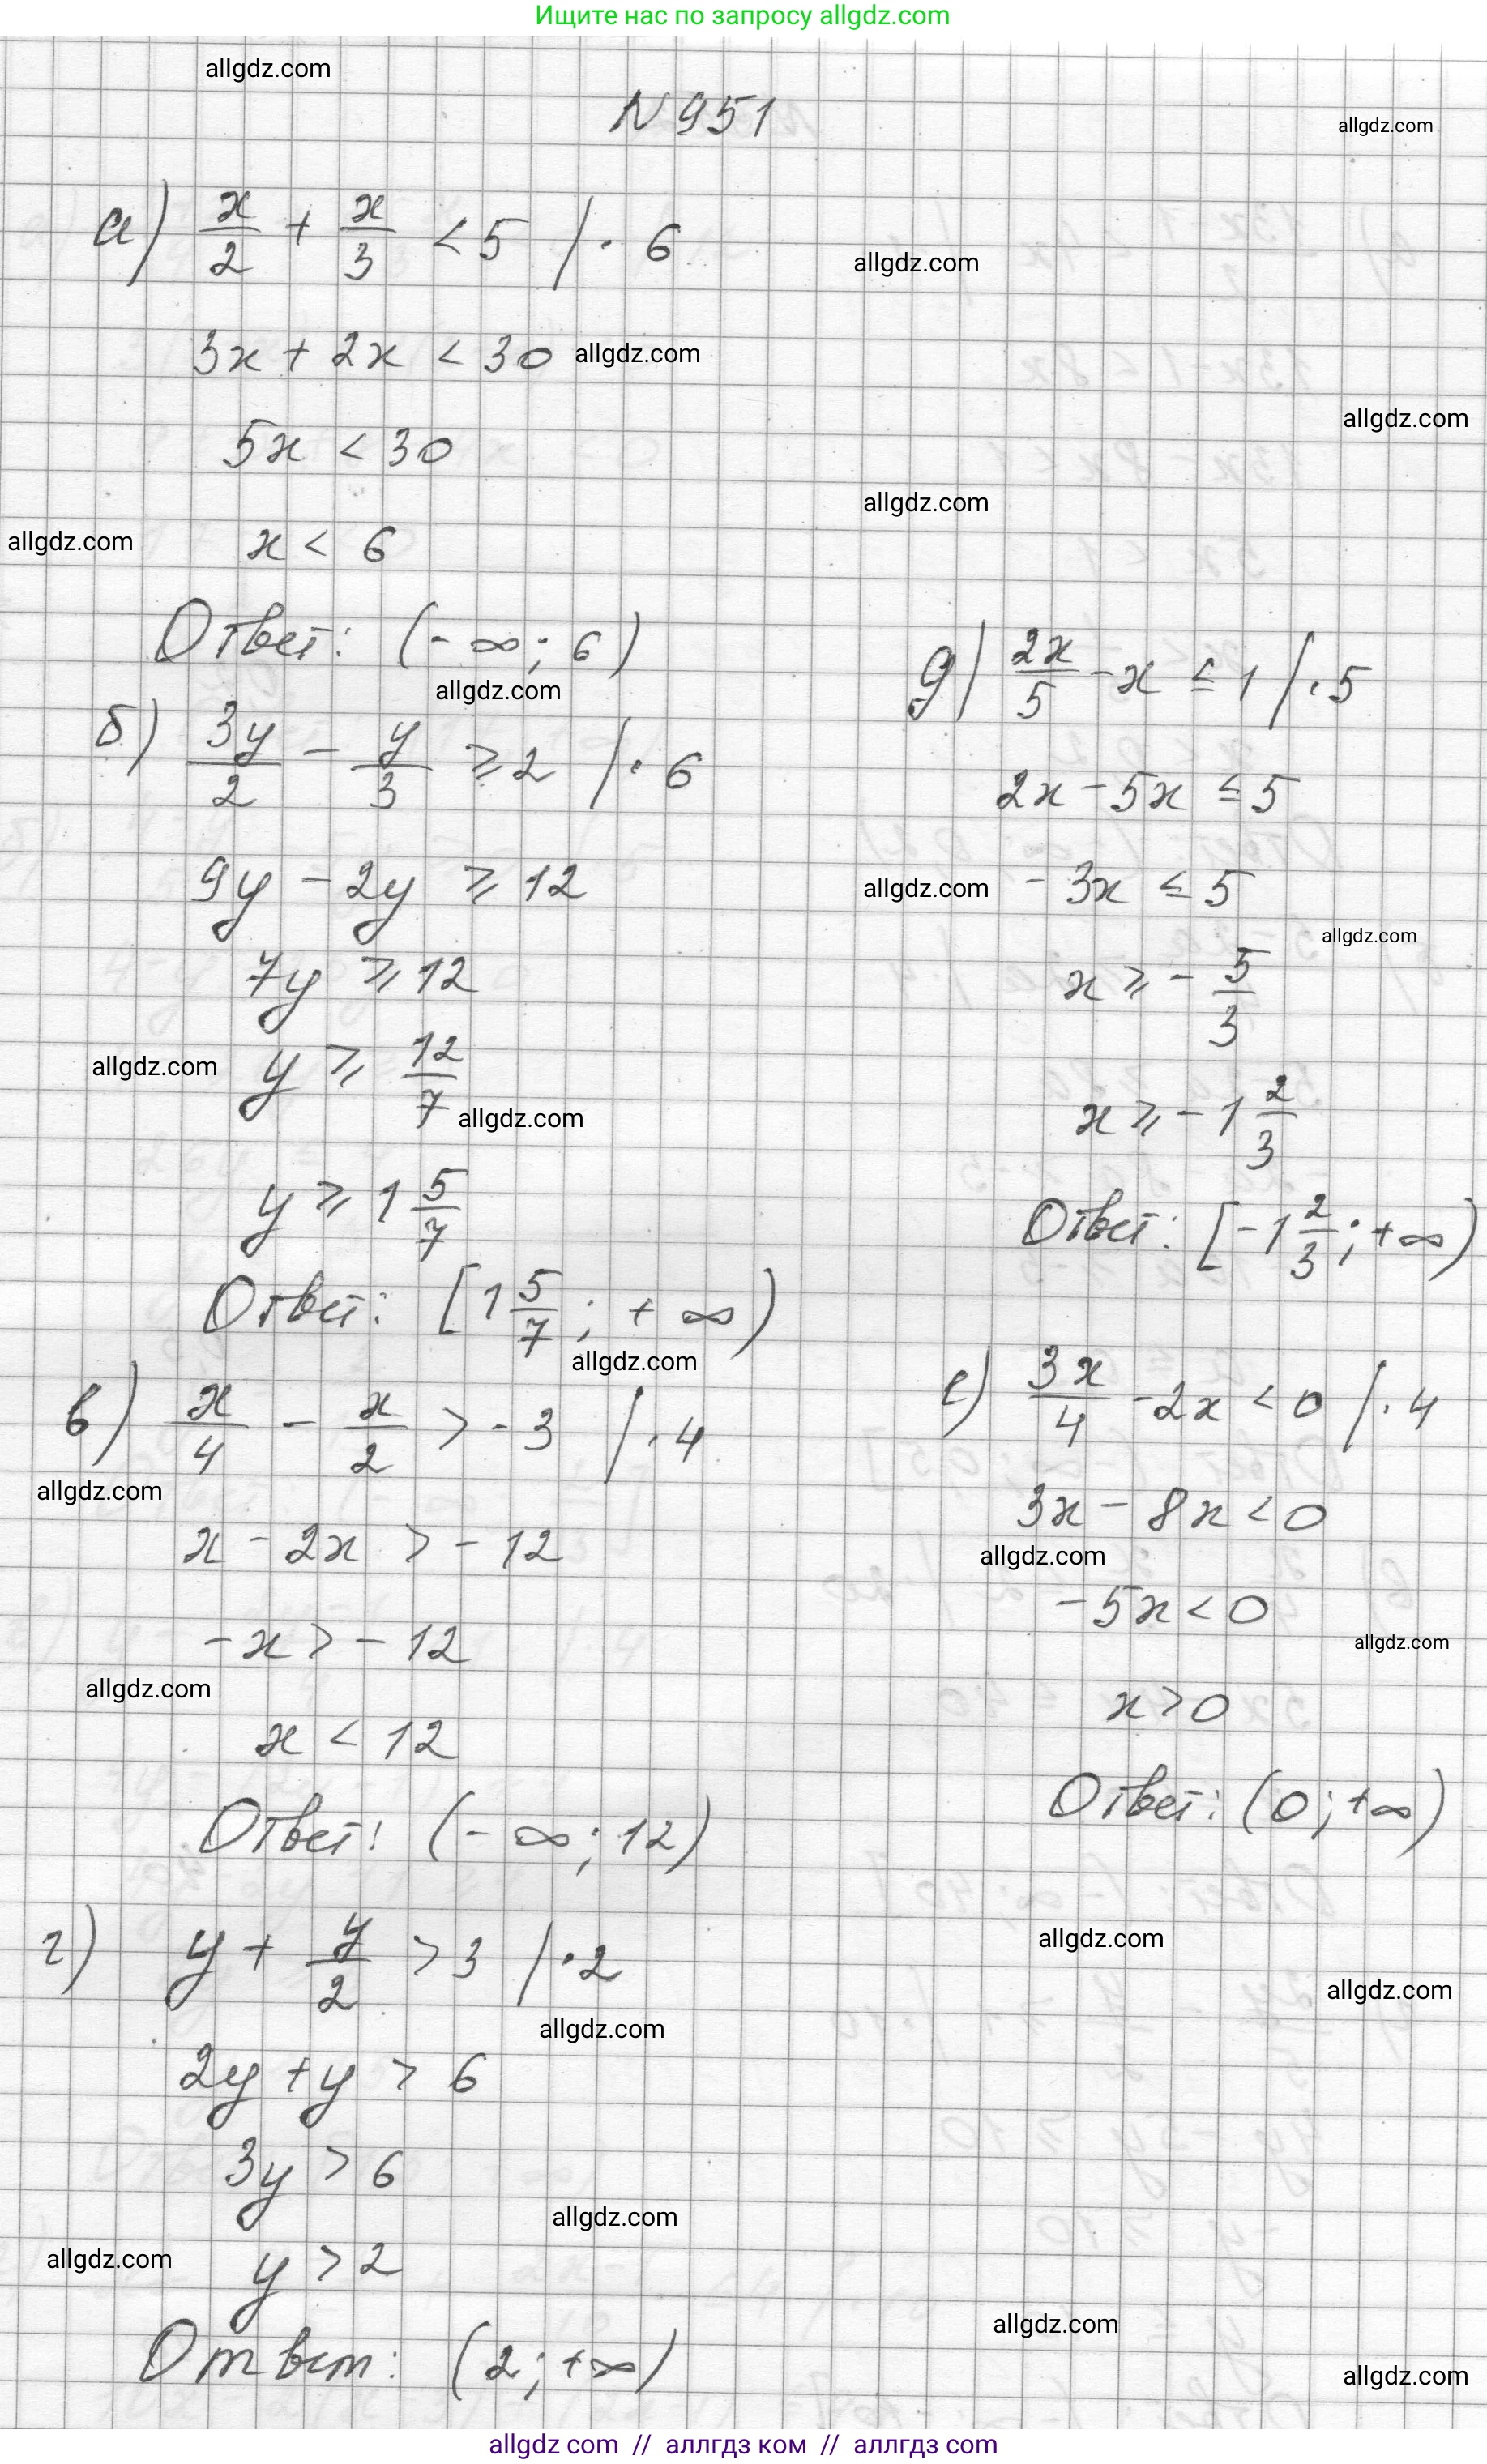 Ищите нас по запросу allgdz.com
allgdz.com
N951
allgdz.com
а) x/2 + x/3 < 5 / · 6
allgdz.com
3x + 2x < 30 allgdz.com
allgdz.com
5x < 30
allgdz.com
allgdz.com x < 6
Ответ: (-∞; 6)
allgdz.com
б) 3y/2 - y/3 ⩾ 2 / · 6
9y - 2y ⩾ 12
7y ⩾ 12
allgdz.com y ⩾ 12/7 allgdz.com
y ⩾ 1 5/7
Ответ: [1 5/7; +∞)
allgdz.com
в) x/4 - x/2 > -3 / · 4
allgdz.com
x - 2x > -12
-x > -12
allgdz.com
x < 12
Ответ: (-∞; 12)
г) y + y/2 > 3 / · 2
allgdz.com
2y + y > 6
3y > 6
allgdz.com
allgdz.com y > 2
Ответ: (2; +∞)
д) 2x/5 - x ≤ 1 / · 5
2x - 5x ≤ 5
allgdz.com -3x ≤ 5
allgdz.com
x ⩾ -5/3
x ⩾ -1 2/3
Ответ: [-1 2/3; +∞)
е) 3x/4 - 2x < 0 / · 4
3x - 8x < 0
allgdz.com
-5x < 0
allgdz.com
x > 0
Ответ: (0; +∞)
allgdz.com
allgdz.com
allgdz.com
allgdz.com
allgdz com // аллгдз ком // аллгдз com